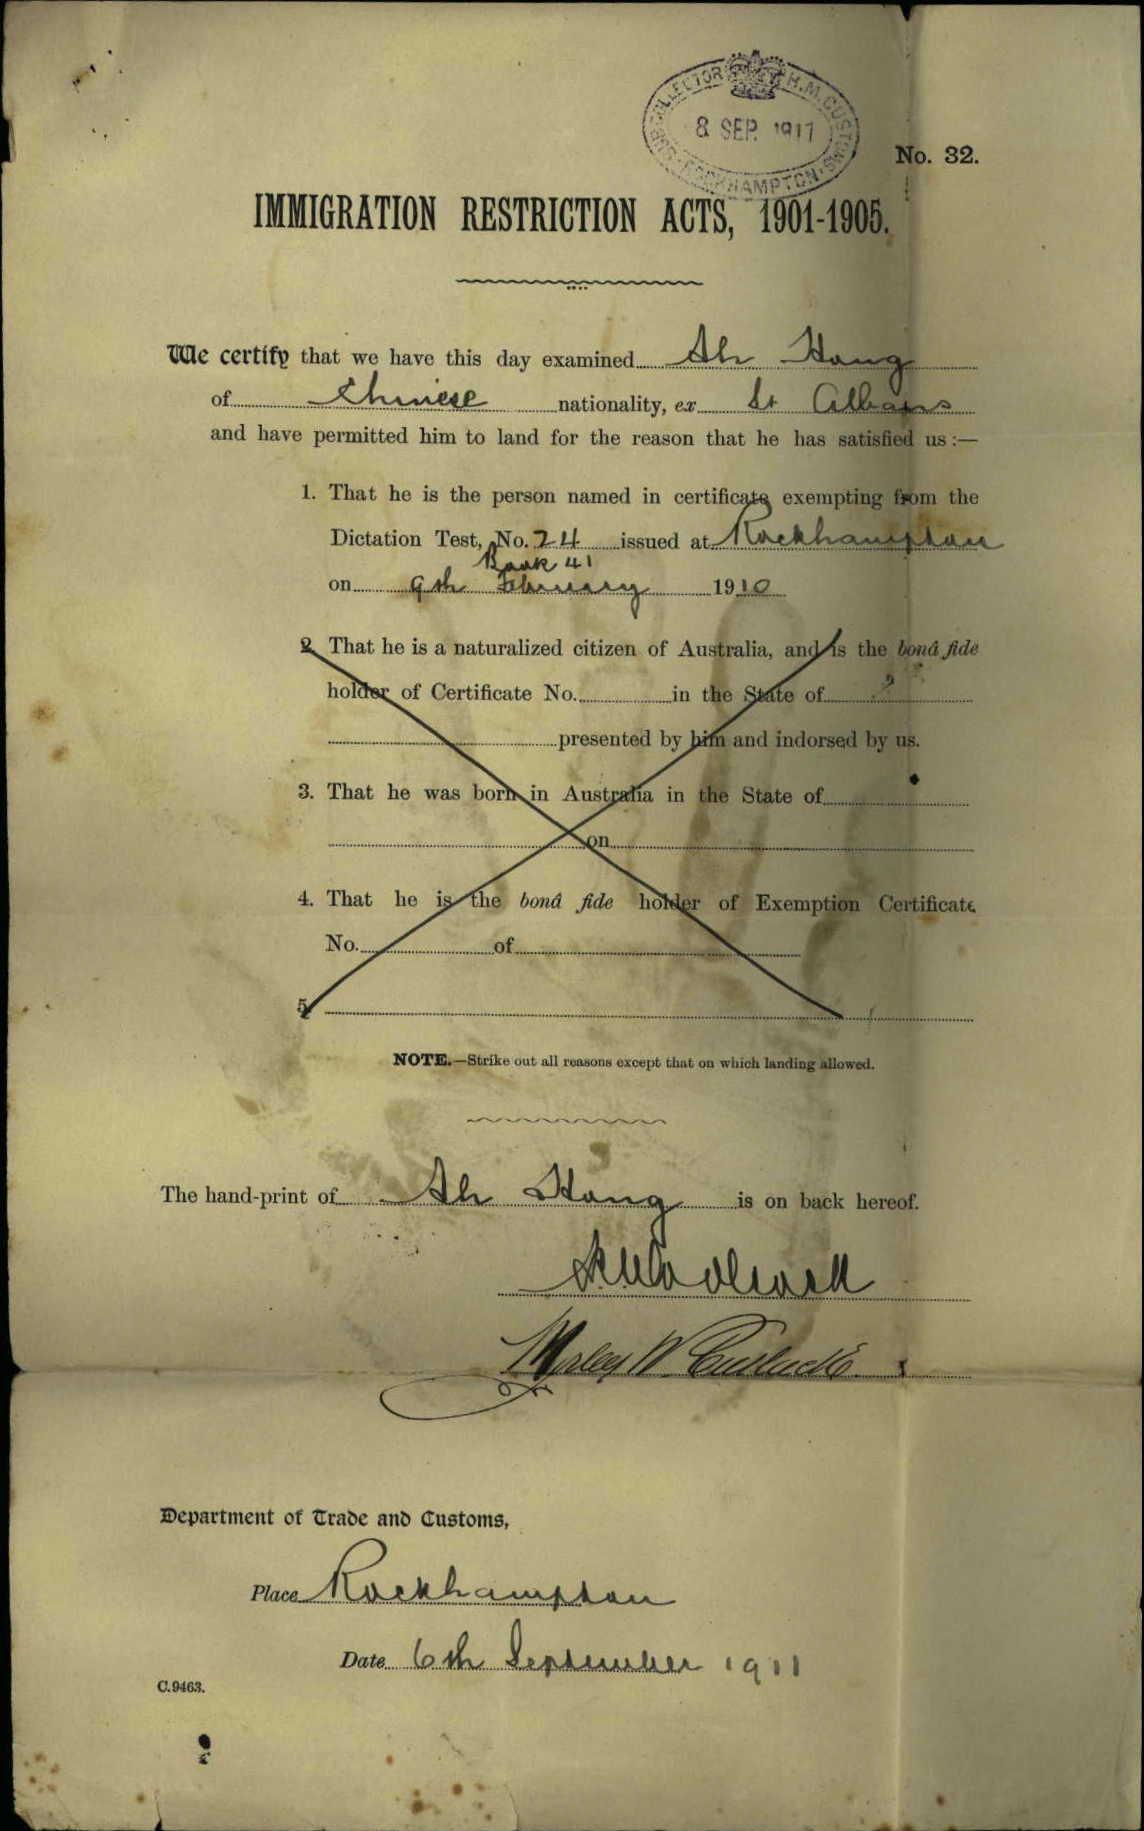 SUB-COLLECTOR H.M. CUSTOMS
8 SEP. 1911
ROCKHAMPTON
No. 32.
IMMIGRATION RESTRICTION ACTS, 1901-1905.
We certify that we have this day examined Ah Hong
of Chinese nationality, ex St Albans
and have permitted him to land for the reason that he has satisfied us :—
1. That he is the person named in certificate exempting from the
Dictation Test, No. 24 issued at Rockhampton
Book 41
on 9th February 1910
2. That he is a naturalized citizen of Australia, and is the bonâ fide
holder of Certificate No. in the State of
presented by him and indorsed by us.
3. That he was born in Australia in the State of
on
4. That he is the bonâ fide holder of Exemption Certificate
No. of
5.
NOTE.—Strike out all reasons except that on which landing allowed.
The hand-print of Ah Hong is on back hereof.
Department of Trade and Customs,
Place Rockhampton
Date 6th September 1911
C.9463.